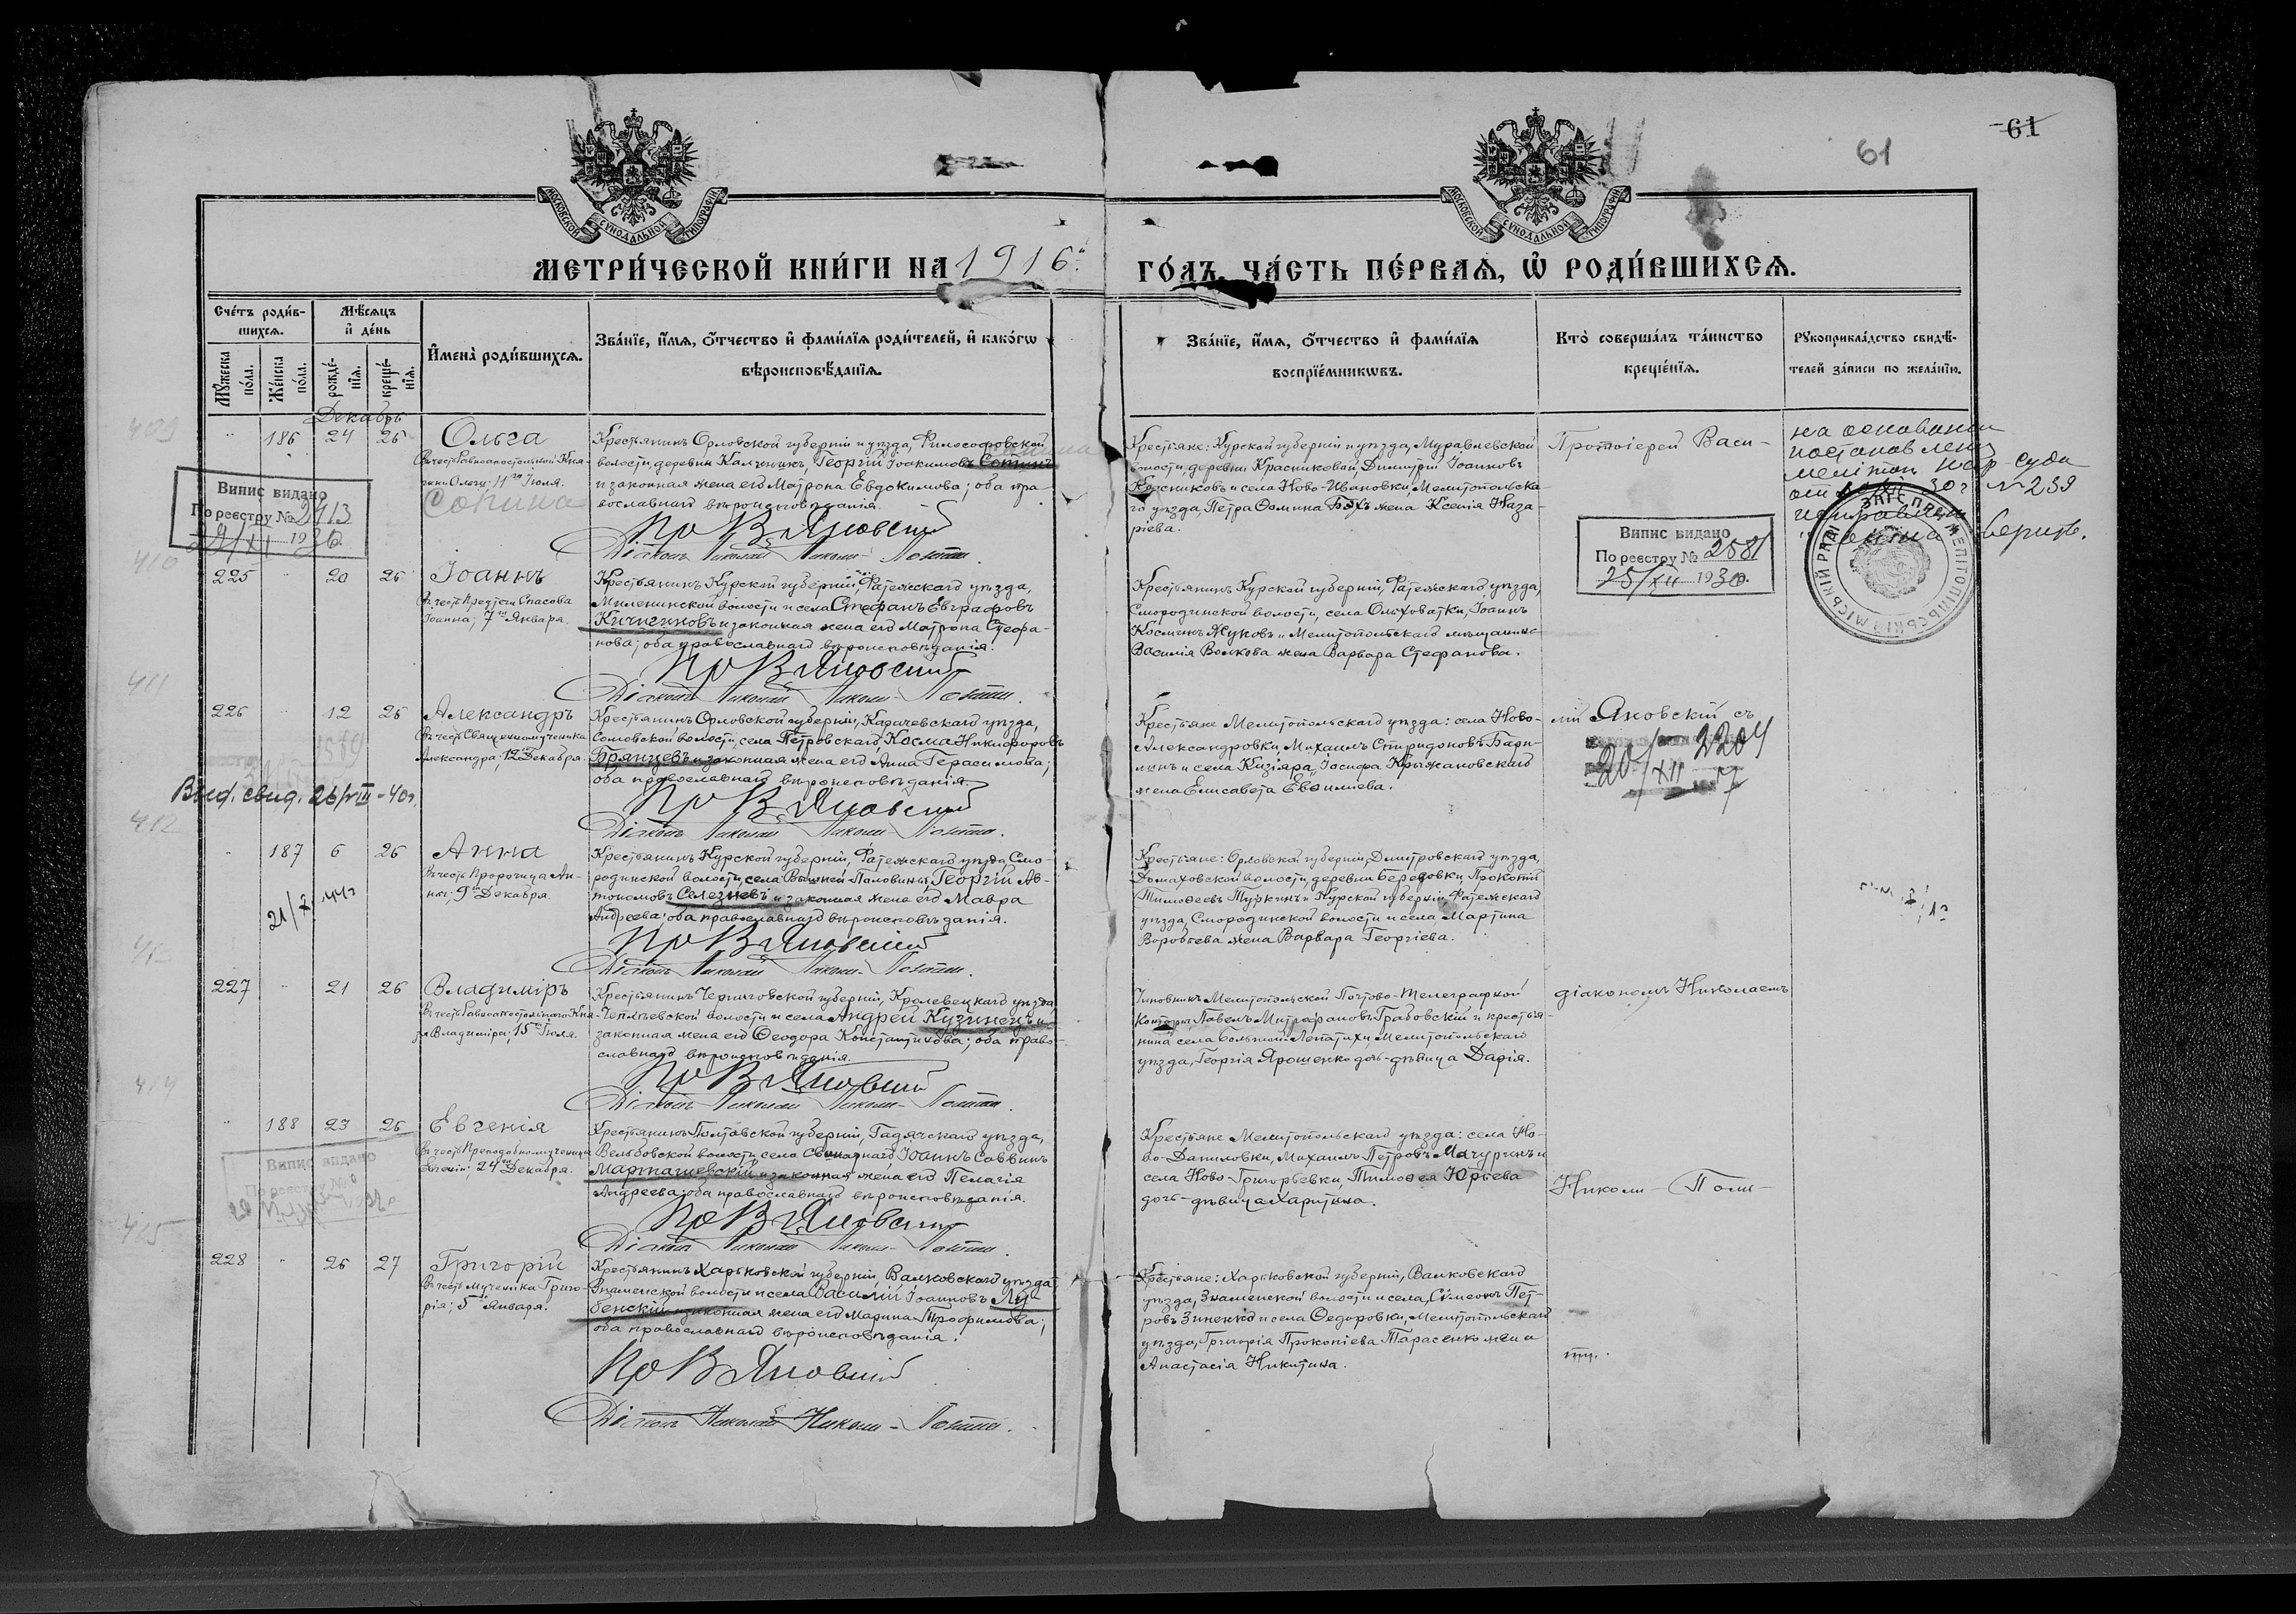 61
61
МОСКОВСКОЙ СѴНОДАЛЬНОЙ ТИПОГРАФІИ
МОСКОВСКОЙ СѴНОДАЛЬНОЙ ТИПОГРАФІИ
МЕТРИ́ЧЕСКОЙ КНИ́ГИ НА 1916й
ГО́ДЪ, ЧА́СТЬ ПЕ́РВАѦ, Ѡ РОДИ́ВШИХСѦ.
Сче́тъ роди́в-
шихсѧ.
Мꙋ́жеска по́ла.
Же́нска по́ла.
Мѣ́сѧцъ
и҆ де́нь
рожде́-нїѧ.
креще́-нїѧ.
И҆мена̀ роди́вшихсѧ.
Зва́нїе, и҆́мѧ, ѻ҆́тчество и҆ фами́лїѧ роди́телей, и҆ како́гѡ
вѣроисповѣ́данїѧ.
Зва́нїе, и҆́мѧ, ѻ҆́тчество и҆ фами́лїѧ
воспрїе́мникѡвъ.
Кто̀ соверша́лъ та́инство
креще́нїѧ.
Рꙋкоприкла́дство свидѣ́-
телей за́писи по жела́нїю.
Декабрь
409
186 24 26 Ольга
Въ честь Равноапостольной Кня-
гини Ольги; 11го Іюля.
Сопина
Крестьянинъ Орловской губерніи и уѣзда, Философовской
волости, деревни Калинникъ, Георгій Іоакимовъ
и законная жена его Матрона Евдокимова; оба пра-
вославнаго вѣроисповѣданія.
Пр В Яновскій
Діаконъ Николай Николи-Поями.
Крестьяне: Курской губерніи и уѣзда, Муравлевской
волости, деревни Красниковой, Димитрій Іоанновъ
Красниковъ и села Ново-Ивановки, Мелитопольска-
го уѣзда, Петра Ѳомина жена Ксенія Наза-
ріева.
Протоіерей Васи-
на основании
постановлен
мелітоп нар-суда
от 30г №239
исправлен
верно.
ЗАГС ПРИ МЕЛІТОПІЛЬСЬКІЙ МІСЬКІЙ РАДІ
Випис видано
По реєстру № 2413
22/XI 1930
Випис видано
По реєстру № 2581
25/XII 1930
410
225 20 26 Іоаннъ
Въ честь Предтечи Спасова
Іоанна; 7го Января.
Крестьянинъ Курской губерніи, Фатежскаго уѣзда,
Миленинской волости и села Стефанъ Евграфовъ
Кичигиновъ и законная жена его Матрона Стефа-
нова; оба православнаго вѣроисповѣданія.
Пр В Яновскій
Діаконъ Николай Николи-Поями.
Крестьянинъ Курской губерніи, Фатежскаго уѣзда,
Смородинской волости, села Ольховатки, Іоаннъ
Космичъ Жуковъ и Мелитопольскаго мѣщанина
Василія Волкова жена Варвара Стефанова.
411
226 12 26 Александръ
Въ честь Священномученика
Александра; 12 Декабря.
Выд. свид. 26/VIII-40г.
Крестьянинъ Орловской губерніи, Карачевскаго уѣзда,
волости, села Петровскаго, Косма Никифоровъ
Брянцевъ и законная жена его Анна Герасимова;
оба православнаго вѣроисповѣданія.
Пр В Яновскій
Діаконъ Николай Николи-Поями.
Крестьяне Мелитопольскаго уѣзда: села Ново-
Александровки, Михаилъ Спиридоновъ Бари-
лынъ и села Кизіяра, Іосифа Крыжановскаго
жена Елисавета Евѳиміева.
лій Яновскій съ
2204
20/XII 7
412
187 6 26 Анна
Въ честь Пророчицы Ан-
ны; 9го Декабря.
Крестьянинъ Курской губерніи, Фатежскаго уѣзда, Смо-
родинской волости, села Вышней Половины, Георгій Ав-
тономовъ Селезневъ и законная жена его Мавра
Андреева; оба православнаго вѣроисповѣданія.
Пр В Яновскій
Діаконъ Николай Николи-Поями.
Крестьяне: Орловской губерніи, Дмитровскаго уѣзда,
Домаховской волости, деревни Бередовки, Прокопій
Тимоѳеевъ и Курской губерніи, Фатежскаго
уѣзда, Смородинской волости и села Мартина
Воробьева жена Варвара Георгіева.
413
227 21 26 Владиміръ
Въ честь Равноапостольнаго Кня-
зя Владиміра; 15 Іюля.
Крестьянинъ Черниговской губерніи, Кролевецкаго уѣзда,
волости и села Андрей Кузинецъ и
законная жена его Ѳеодора Константинова; оба право-
славнаго вѣроисповѣданія.
Пр В Яновскій
Діаконъ Николай Николи-Поями.
Чиновникъ Мелитопольской Почтово-Телеграфной
Конторы Павелъ Митрофановъ Грабовскій и крестья-
нина села Большой-Лепатихи, Мелитопольскаго
уѣзда, Георгія Ярошенко дочь-дѣвица Дарія.
діакономъ Николаемъ
414
188 23 26 Евгенія
Въ честь Преподобномученицы
Евгеніи; 24го Декабря.
Випис видано
По реєстру №
Крестьянинъ Полтавской губерніи, Гадячскаго уѣзда,
Вельбовской волости, села Іоаннъ Саввинъ
Марташевскій и законная жена его Пелагія
Андреева; оба православнаго вѣроисповѣданія.
Пр В Яновскій
Діаконъ Николай Николи-Поями.
Крестьяне Мелитопольскаго уѣзда: села Но-
во-Даниловки, Михаилъ Петровъ Мачуринъ и
села Ново-Григорьевки, Тимоѳея Юрьева
дочь-дѣвица Харитина.
Николи-Поли-
415
228 26 27 Григорій
Въ честь Мученика Григо-
рія; 5 Января.
Крестьянинъ Харьковской губерніи, Валковскаго уѣзда,
Знаменской волости и села Василій Іоанновъ Лу-
бенскій и законная жена его Марина Трофимова;
оба православнаго вѣроисповѣданія.
Пр В Яновскій
Діаконъ Николай Николи-Поями.
Крестьяне: Харьковской губерніи, Валковскаго
уѣзда, Знаменской волости и села, Сѵмеонъ Пет-
ровъ Зиненко и села Ѳедоровки, Мелитопольскаго
уѣзда, Григорія Прокопіева Тарасенко жена
Анастасія Никитина.